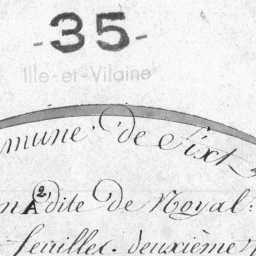 -35-
Ille-et-Vilaine
mune de Sixt
n A2 dite de Noyal
feuilles. deuxième